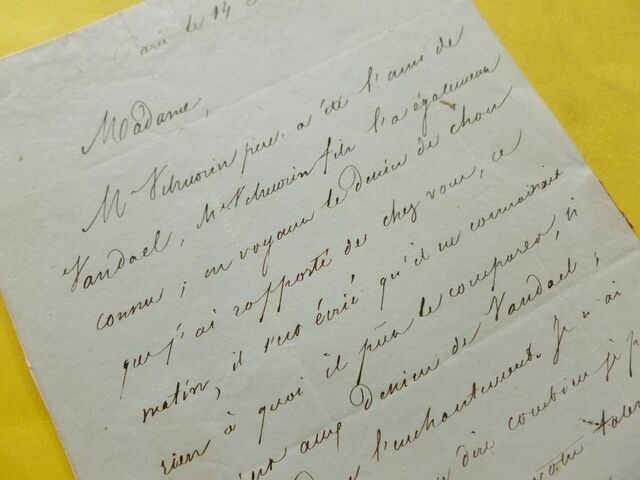 Paris le 14
Madame,
Mr Schwerin père a été l'ami de
Vandael, Mr Schwerin fils l'a également
connu ; en voyant le dessin de chou
que j'ai rapporté de chez vous, ce
matin, il s'est écrié qu'il ne connaissait
rien à quoi il pût le comparer, si
aux dessins de Vandael ;
l'enchantement. Je n'ai
dire combien je
votre talent